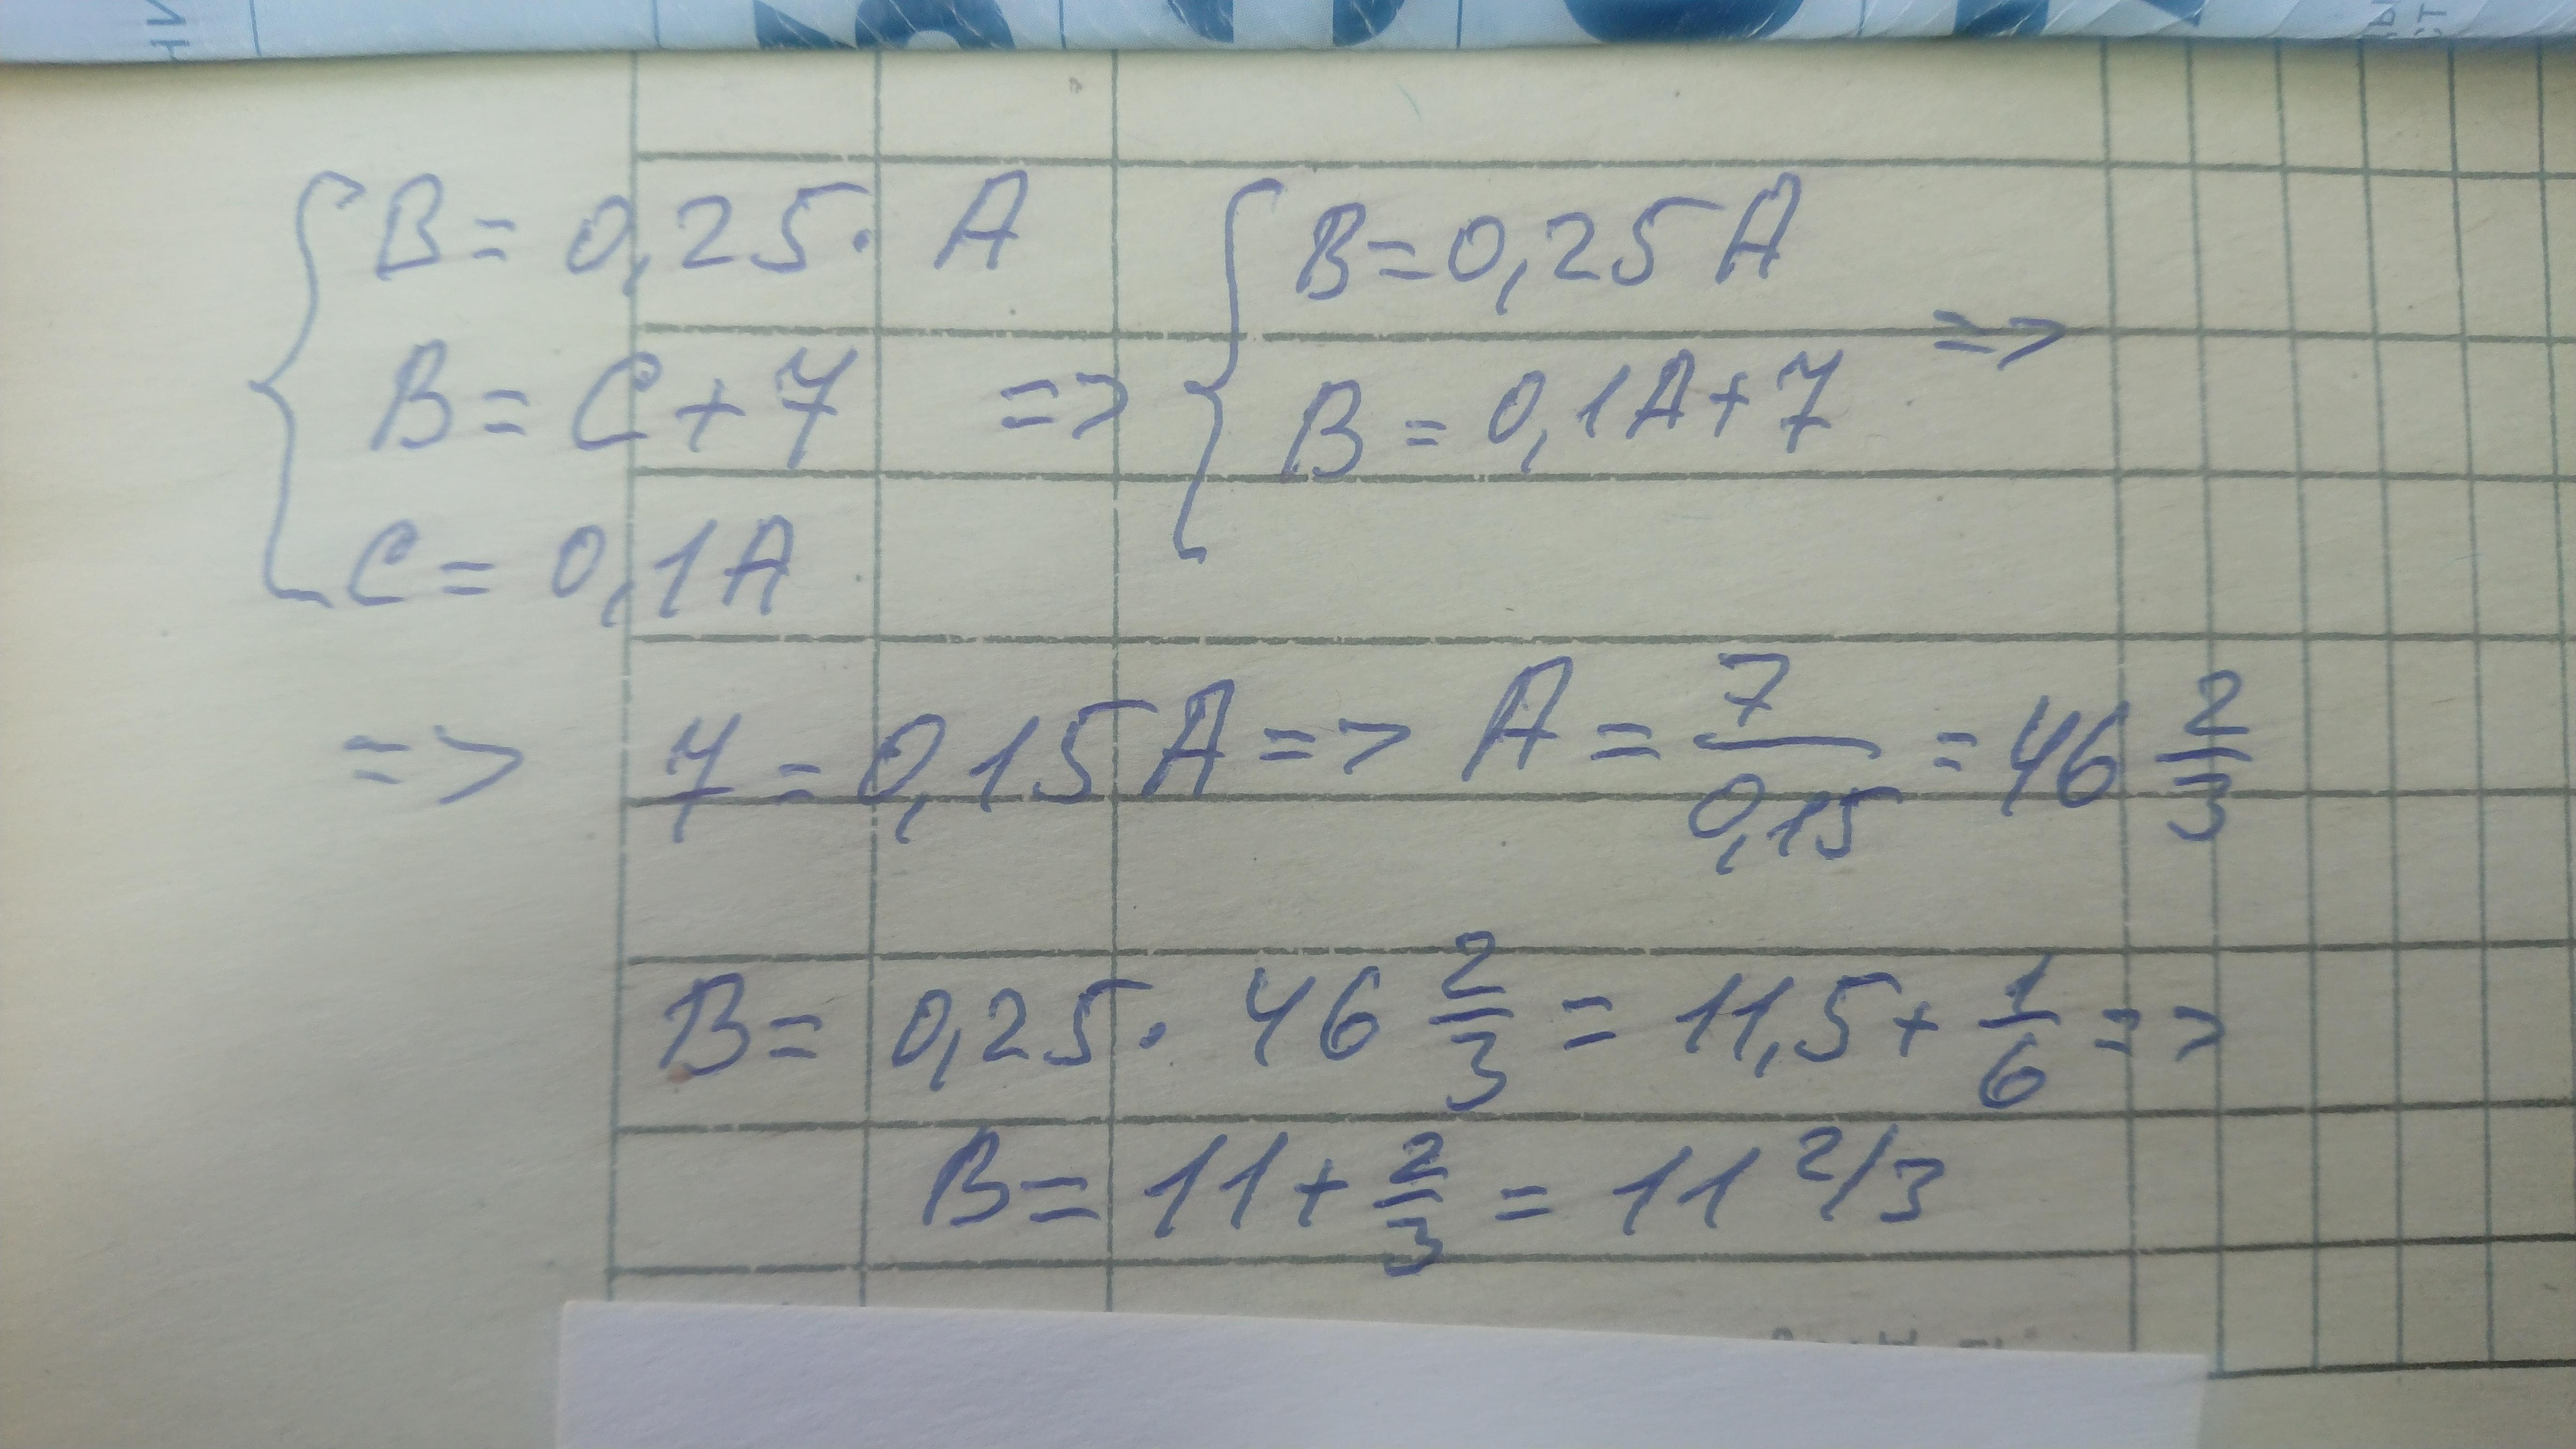 { B = 0,25 · A
B = C + 7
C = 0,1A
=> { B = 0,25 A
B = 0,1A + 7
=>
=> 7 = 0,15 A => A = 7/0,15 = 46 2/3
B = 0,25 · 46 2/3 = 11,5 + 1/6 =>
B = 11 + 2/3 = 11 2/3